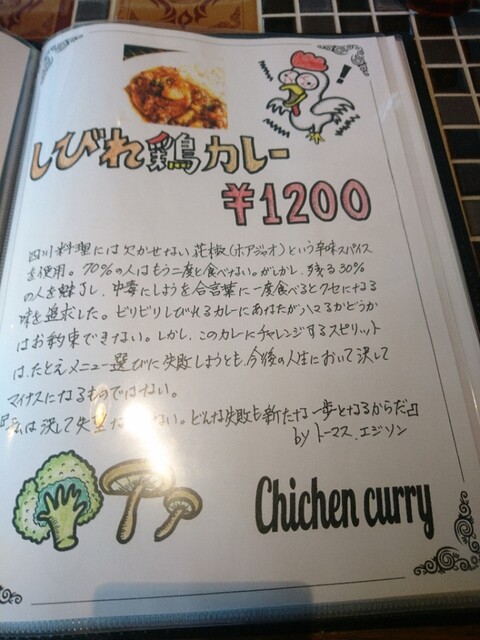 しびれ鶏カレー
¥1200
四川料理には欠かせない花椒(ホアジャオ)という辛味スパイス
を使用。70%の人はもう二度と食べない。がしかし、残る30%
の人を魅了し、中毒にしようを合言葉に一度食べるとクセになる
味を追求した。ビリビリしびれるカレにあなたがハマるかどうか
はお約束できない。しかし、このカレにチャレンジするスピリット
は、たとえメニュー選びに失敗しようとも、今後の人生において決して
マイナスになるものではない。
私は決して失望 ない。どんな失敗も新たな一歩となるからだ」
by トーマス.エジソン
Chichen curry